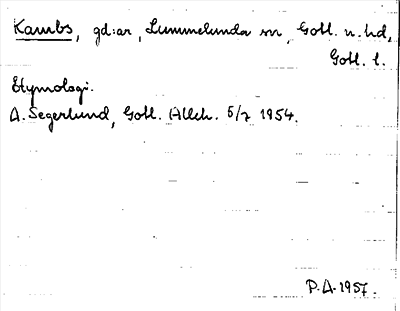 Kambs, gd:ar, Lummelunda sn, Gotl. n. hd,
Gotl. l.
Etymologi.
A. Segerlund, Gotl. Alleh. 5/7 1954.
P.A. 1957.